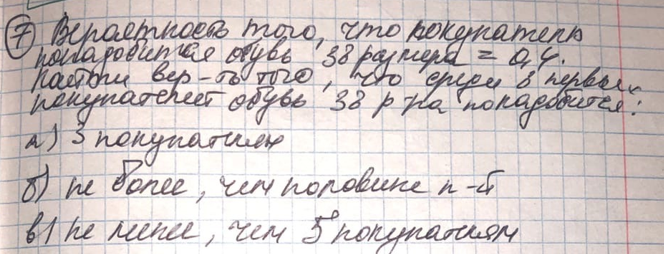 7 Вероятность того, что покупателю
понадобится обувь 38 размера = 0,4.
Найти вер-ть того, что среди 8 первых
покупателей обувь 38 р-ра понадобится:
а) 3 покупателям
б) не более, чем половине п-й
в) не менее, чем 5 покупателям